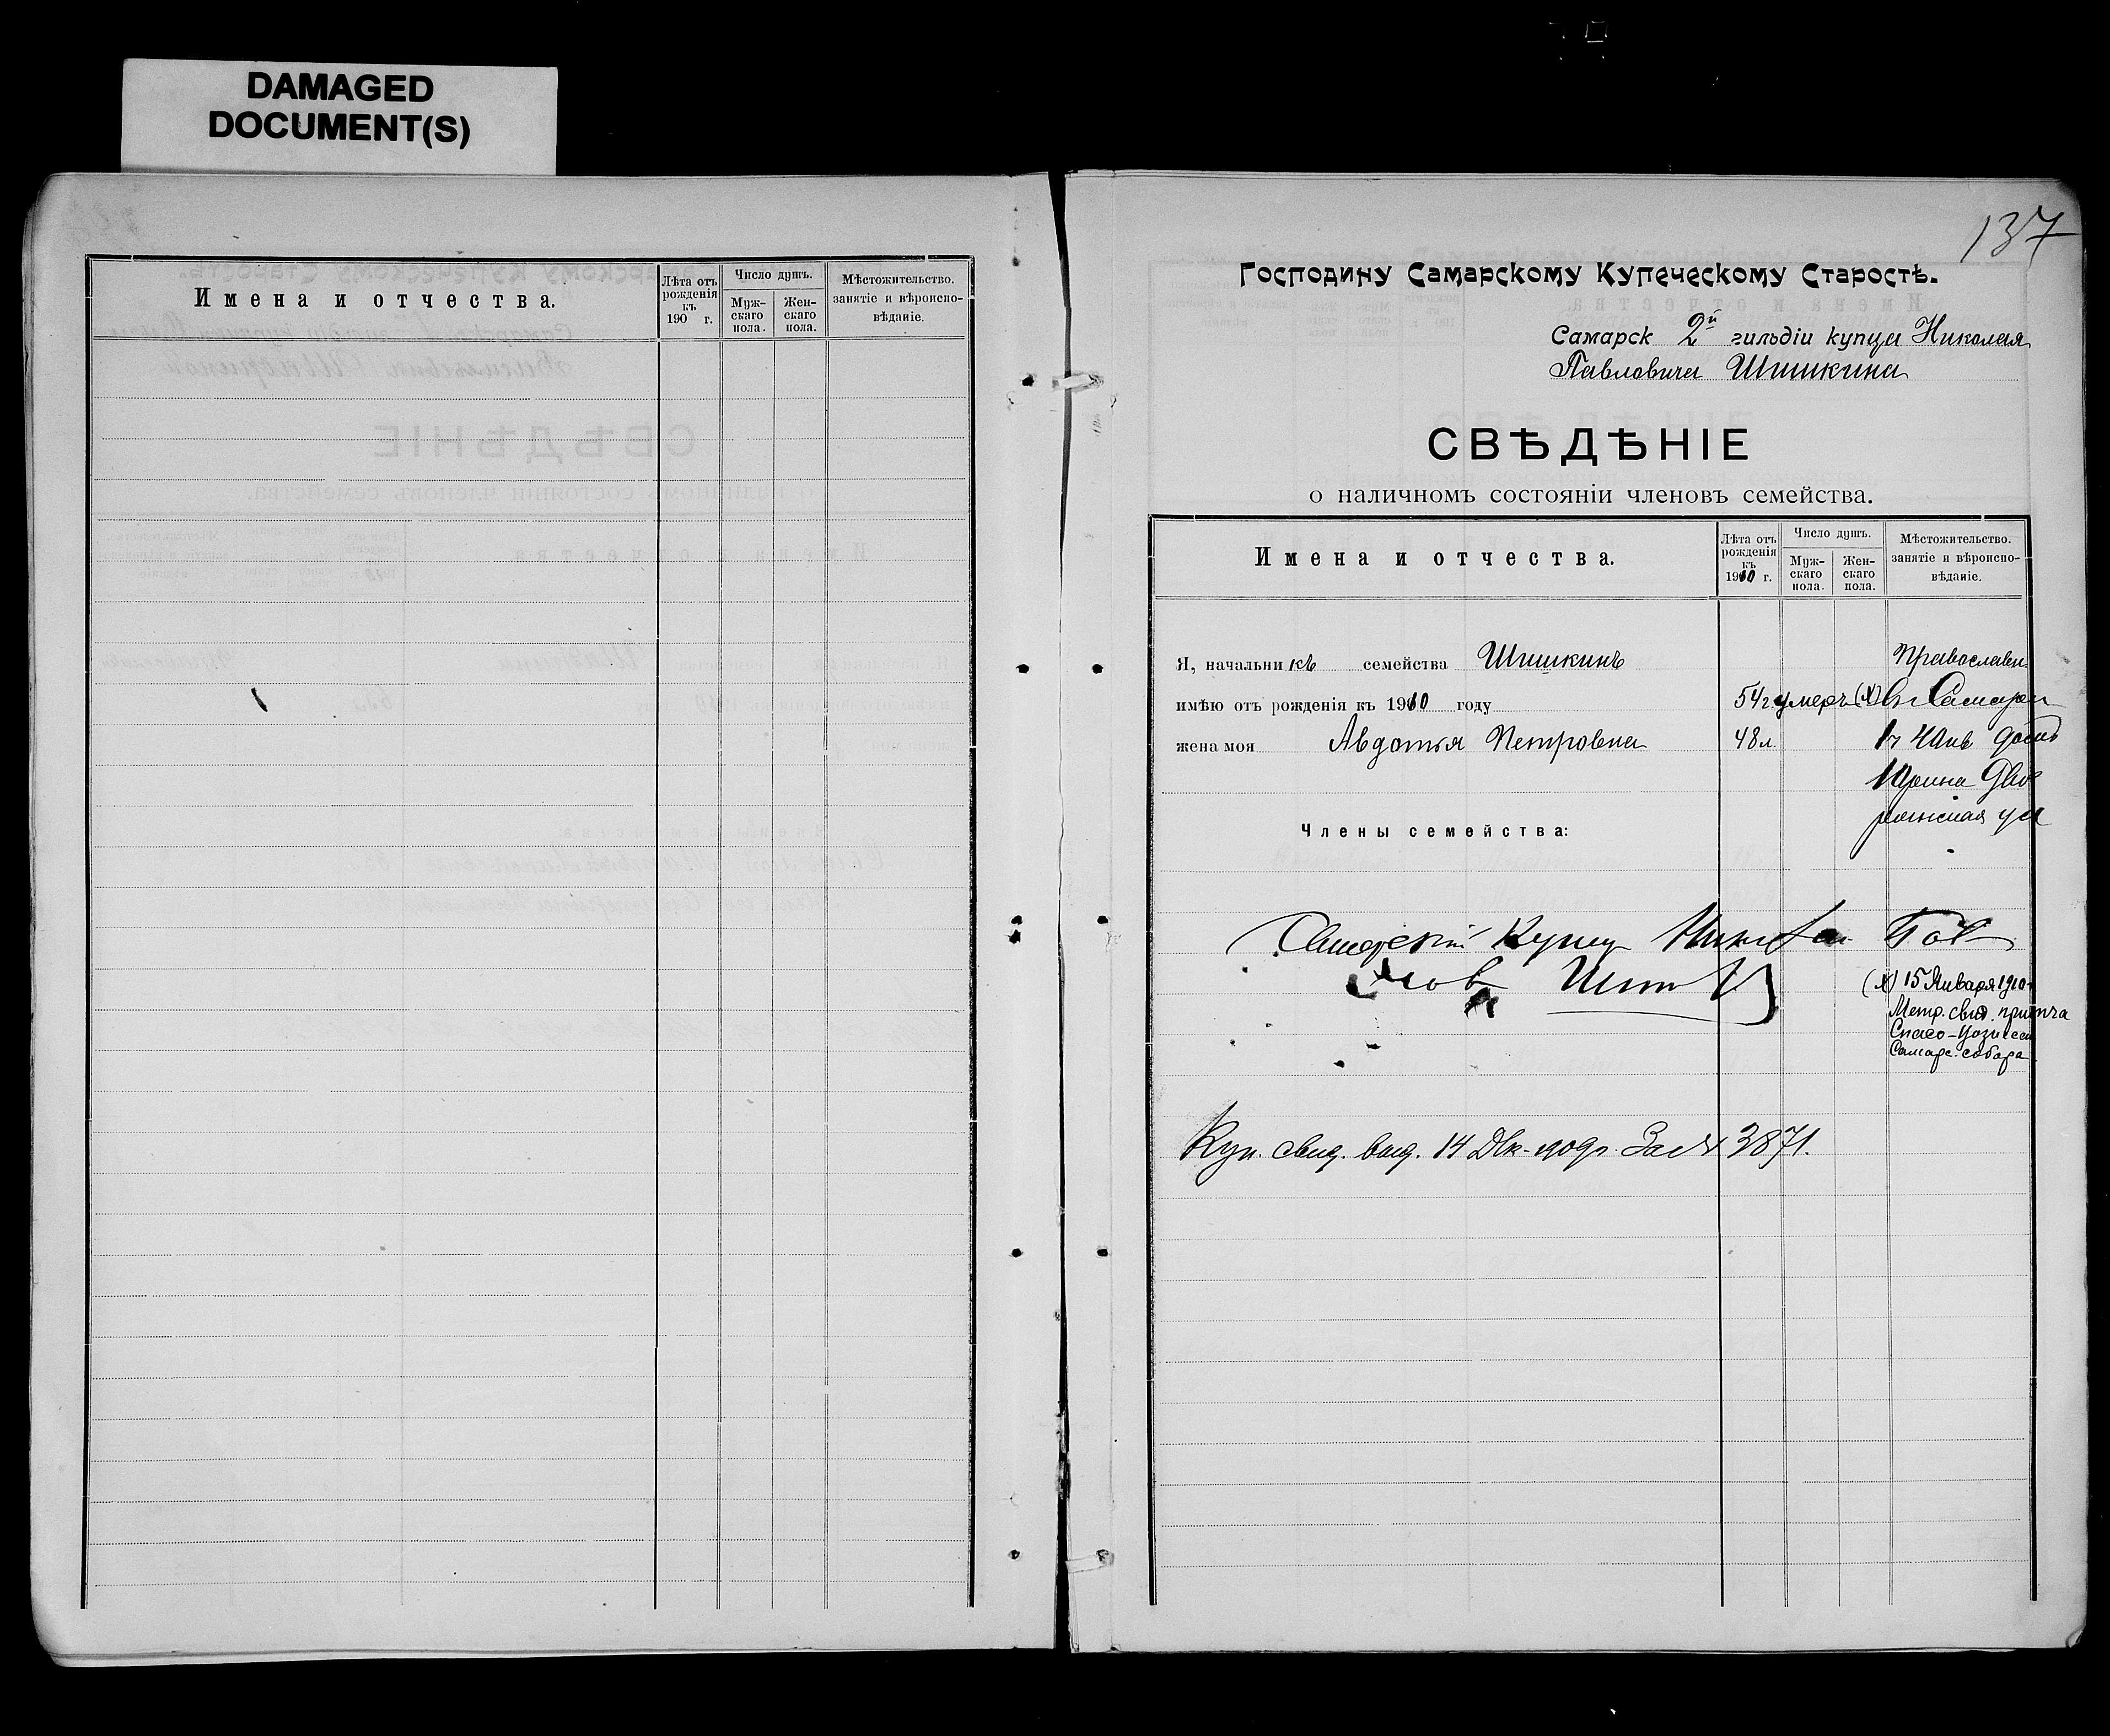 DAMAGED
DOCUMENT(S)
Имена и отчества.
Лѣта отъ рожденія къ 190 г.
Число душъ.
Муж-скаго пола.
Жен-скаго пола.
Мѣстожительство. занятіе и вѣроиспо-вѣданіе.
137
Господину Самарскому Купеческому Старостѣ.
Самарск 2й гильдіи купца Николая
Павловича Шишкина
СВѢДѢНІЕ
о наличномъ состояніи членовъ семейства.
Имена и отчества.
Лѣта отъ рожденія къ 1910 г.
Число душъ.
Муж-скаго пола.
Жен-скаго пола.
Мѣстожительство. занятіе и вѣроиспо-вѣданіе.
Я, начальникъ семейства Шишкинъ Православн
имѣю отъ рожденія къ 1910 году 54 г. умеръ (х) въ Самаре
жена моя Авдотья Петровна 48 л.
Члены семейства:
Самарский Купец Николай Пав
лов Шиш
(х) 15 Января 1910 г
Метр. свид. причта
Спасо-Вознесен
Самарс. собора
Куп. свид. выд. 14 Дек. 1909 г. За № 3871.